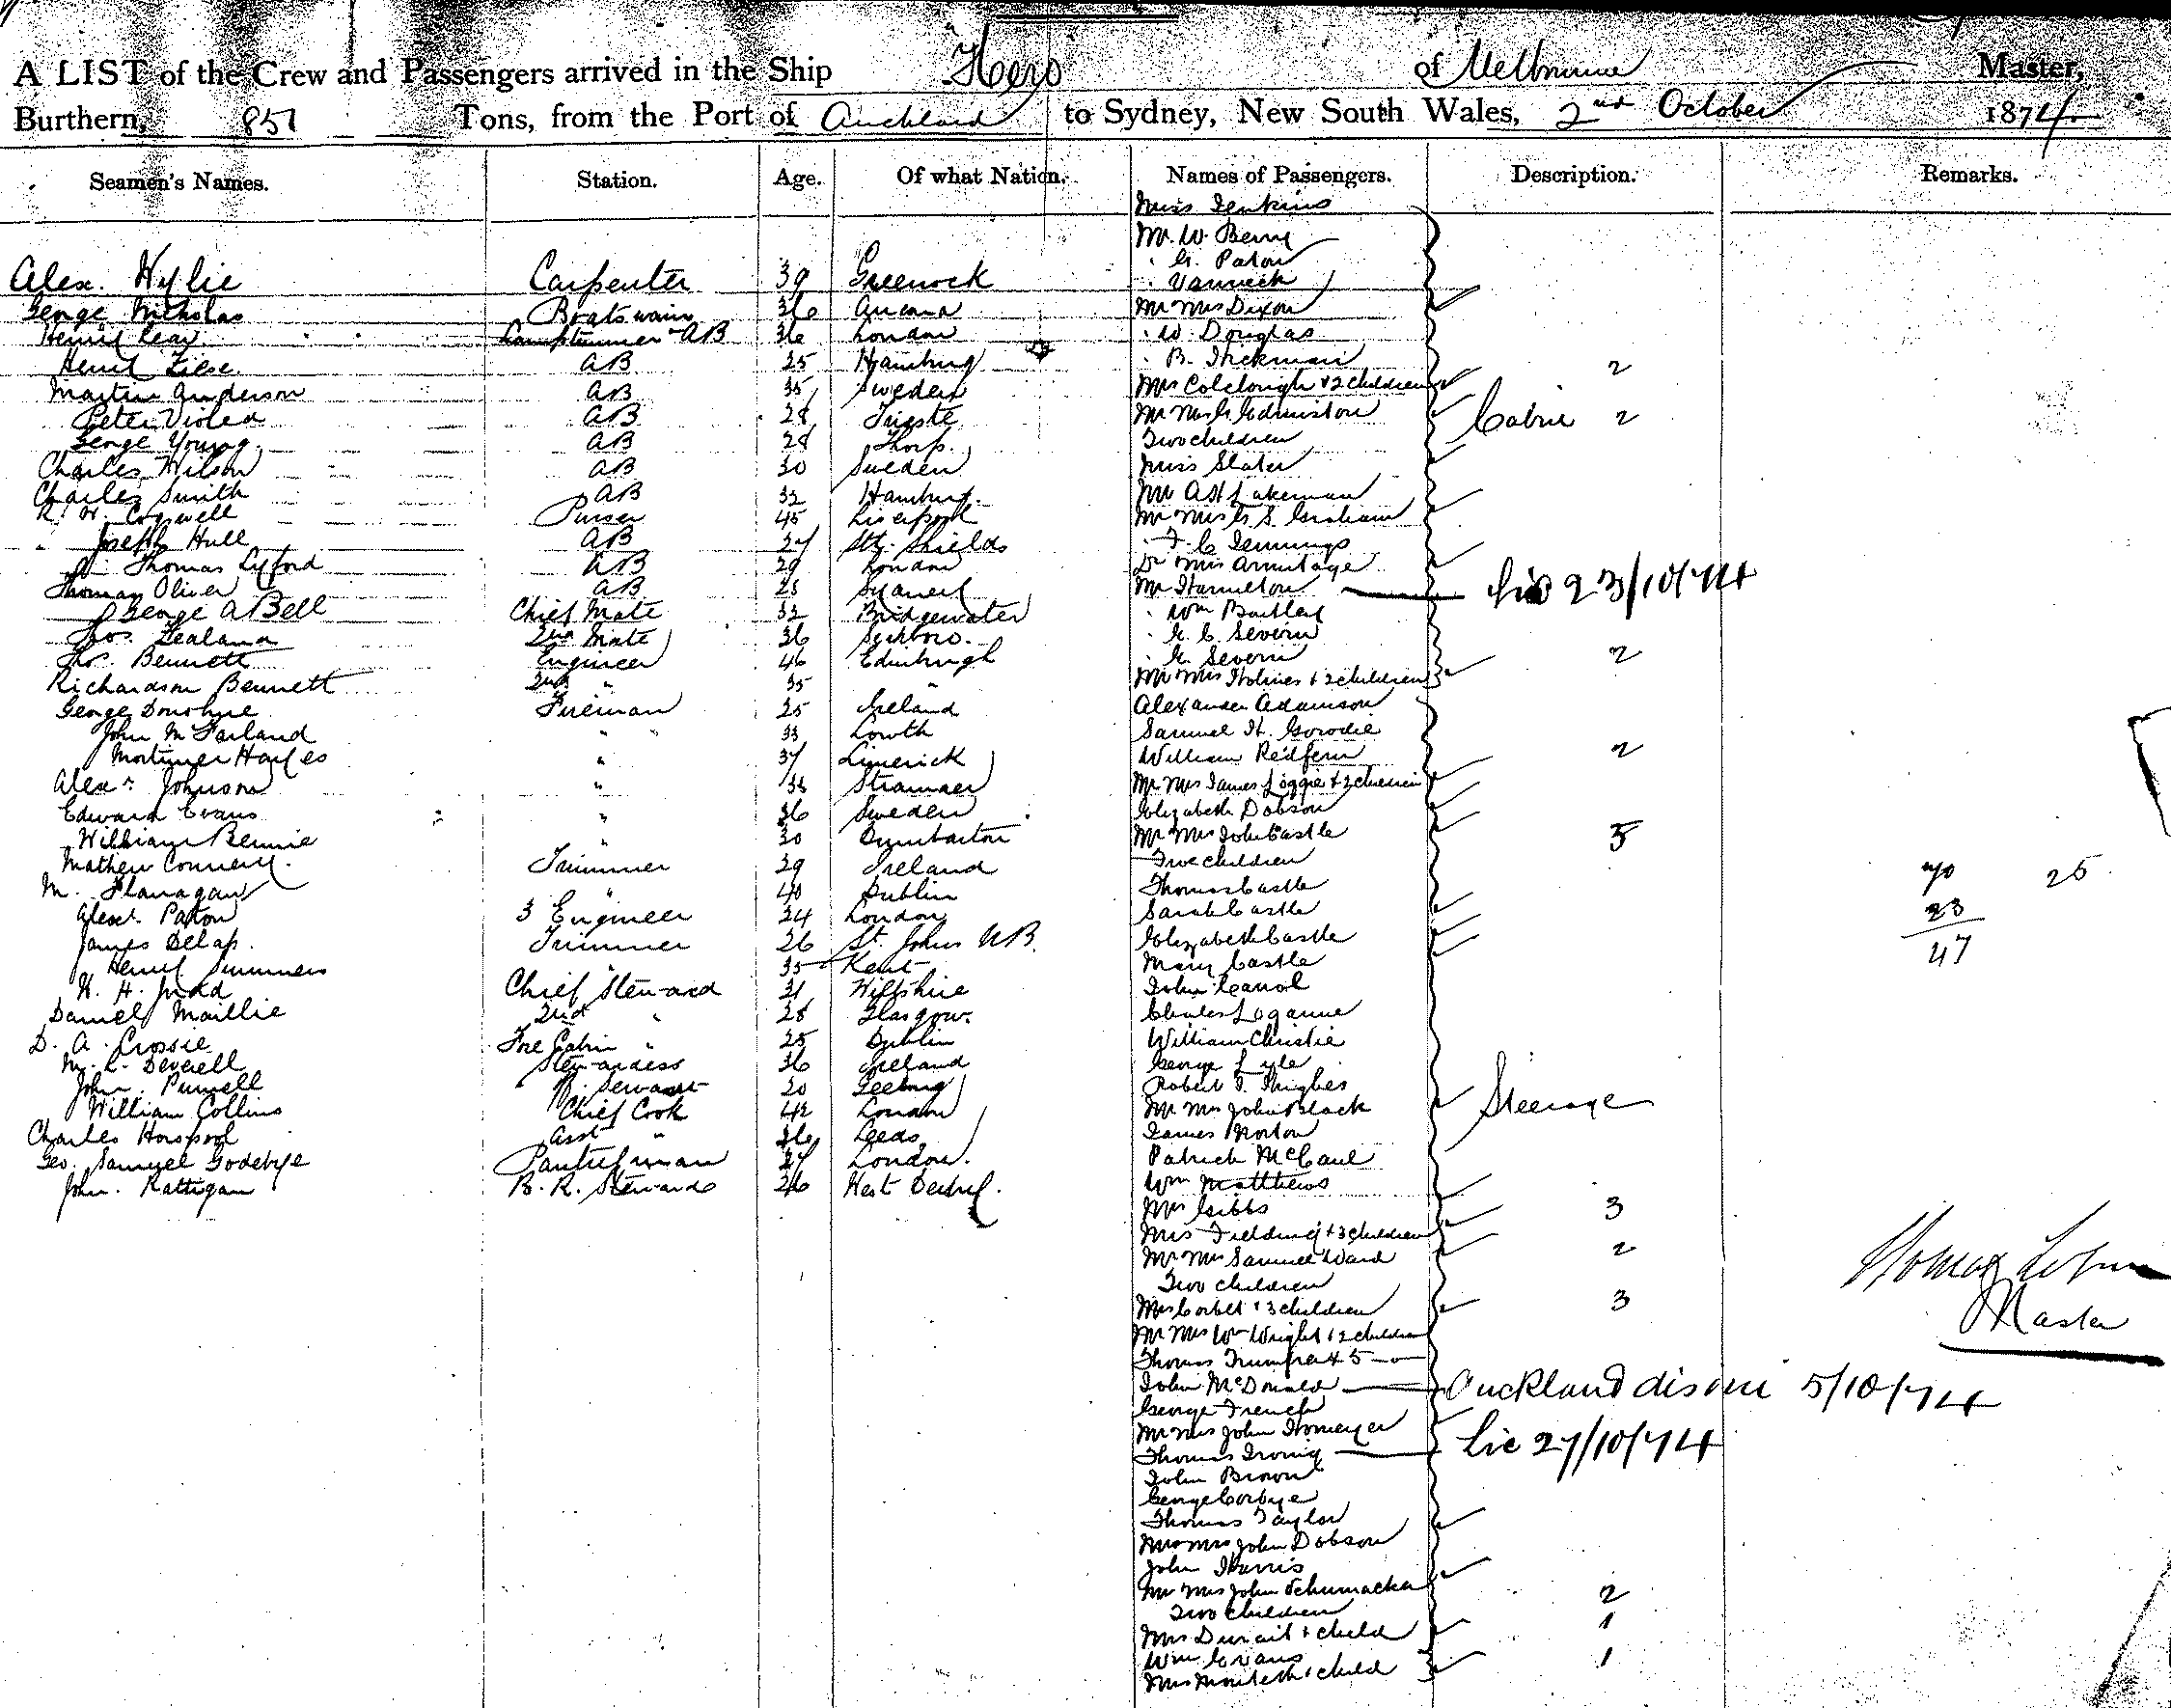 A LIST of the Crew and Passengers arrived in the Ship Hero of Melbourne Master,
Burthern, Tons, from the Port of Auckland to Sydney, New South Wales, 2nd October 1874.
Seamen's Names. Station. Age. Of what Nation. Names of Passengers. Description. Remarks.
Miss Jenkins
Mr. W. Berry
G. Paton
Alex. Wylie Carpenter 39 Greenock
George Nicholas Boatswain 36 Ancona Mr Mrs Dixon
Lamptrimmer AB 36 London W. Douglas
AB 25 Hamburg 2
Martin Anderson AB 35 Sweden Mrs Colclough & 2 children
AB 28 Trieste Mr Mrs G. Edmiston Cabin 2
George Young AB 28 Two children
Charles Wilson AB 30 Sweden Miss Slater
Charles Smith AB 32 Hamburg Lakeman
Purser 45 Liverpool Mr Mrs G. S. Graham
Joseph Hull AB 27 Sth. Shields F. C. Jennings
Thomas Lyford AB 29 London Dr Mrs Armitage
Thomas Oliver AB 25 Mr Hamilton 23/10/74
George A Bell Chief Mate 32 Bridgewater Wm
Thos. Zealand 2nd Mate 36 G. C. Severn
Thos. Bennett Engineer 46 Edinburgh G. Severn 2
Richardson Bennett 2nd " 35 " Mr Mrs Holmes & 2 children
George Donohue Fireman 25 Ireland Alexander Adamson
John McFarland " " 33 Lowth Samuel H.
Mortimer Hayes " 37 Limerick William Redfern 2
Alexr. Johnson " 33 Stranraer Mr Mrs James Loggie & 2 children
Edward Evans " 36 Sweden Elizabeth Dobson
William Rennie " 30 Dumbarton Mr Mrs John Castle 5
Mathew Trimmer 39 Ireland Five children
M. Flanagan " 40 Dublin Thomas Castle 25
Alexr. Paton 3 Engineer 24 London Sarah Castle 23
James Delap. Trimmer 26 St. Johns NB. Elizabeth Castle 47
Henry Summers " 35 Kent Mary Castle
H. H. Judd Chief Steward 31 Wiltshire John Carrol
Daniel Maillie 2nd " 28 Glasgow. Charles
D. A. Crossie Fore Cabin " 25 Dublin William Christie
M. L. Deverell Stewardess 36 Ireland George Lyle
John Purnell Servant 20 Geelong Robert
William Collins Chief Cook 42 London Mr Mrs John Black Steerage
Charles Horspool Asst " 36 Leeds James Norton
Geo. Samuel Godebye Pantryman 27 London. Patrick McCaul
John Rattigan B. R. Steward 26 Wm Matthews
Mrs Gibbs 3
Mrs Fielding & 3 children
Mr Mrs Samuel Ward 2
Two children
Mrs Corbett & 3 children 3
Master
Mr Mrs Wm Wright & 2 children
Thomas
John McDonald Auckland 5/10/74
George French
Mr Mrs John
Thomas Irving Lic 27/10/74
John Brown
George Corbye
Thomas Taylor
John Dobson
John Harris
Mr Mrs John Schumacker 2
Two children
Mrs & child 1
Wm Evans
Mrs Monteith & child 1